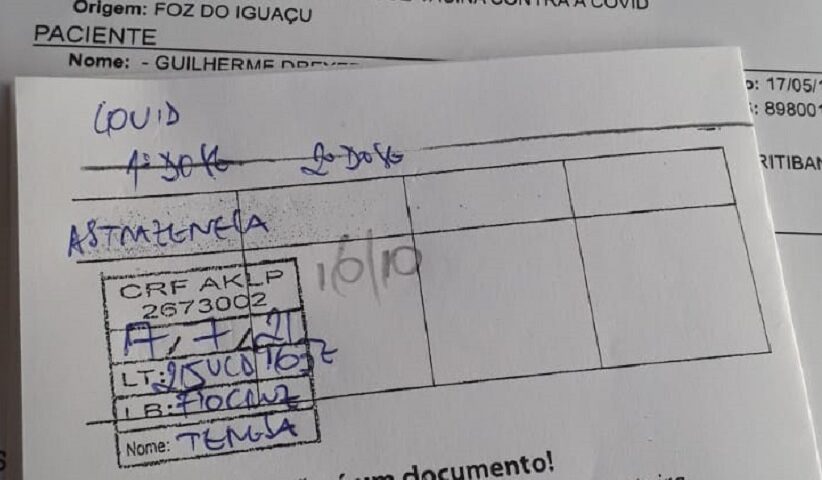 Origem: FOZ DO IGUAÇU
VACINA CONTRA A COVID
PACIENTE
Nome: - GUILHERME
17/05/1
898001
RITIBAN
COVID
1ª DOSE 2ª DOSE
ASTRAZENECA
CRF AKLP
2673002
17, 7, 21
16/10
LT:
LB: FIOCRUZ
Nome:
documento!